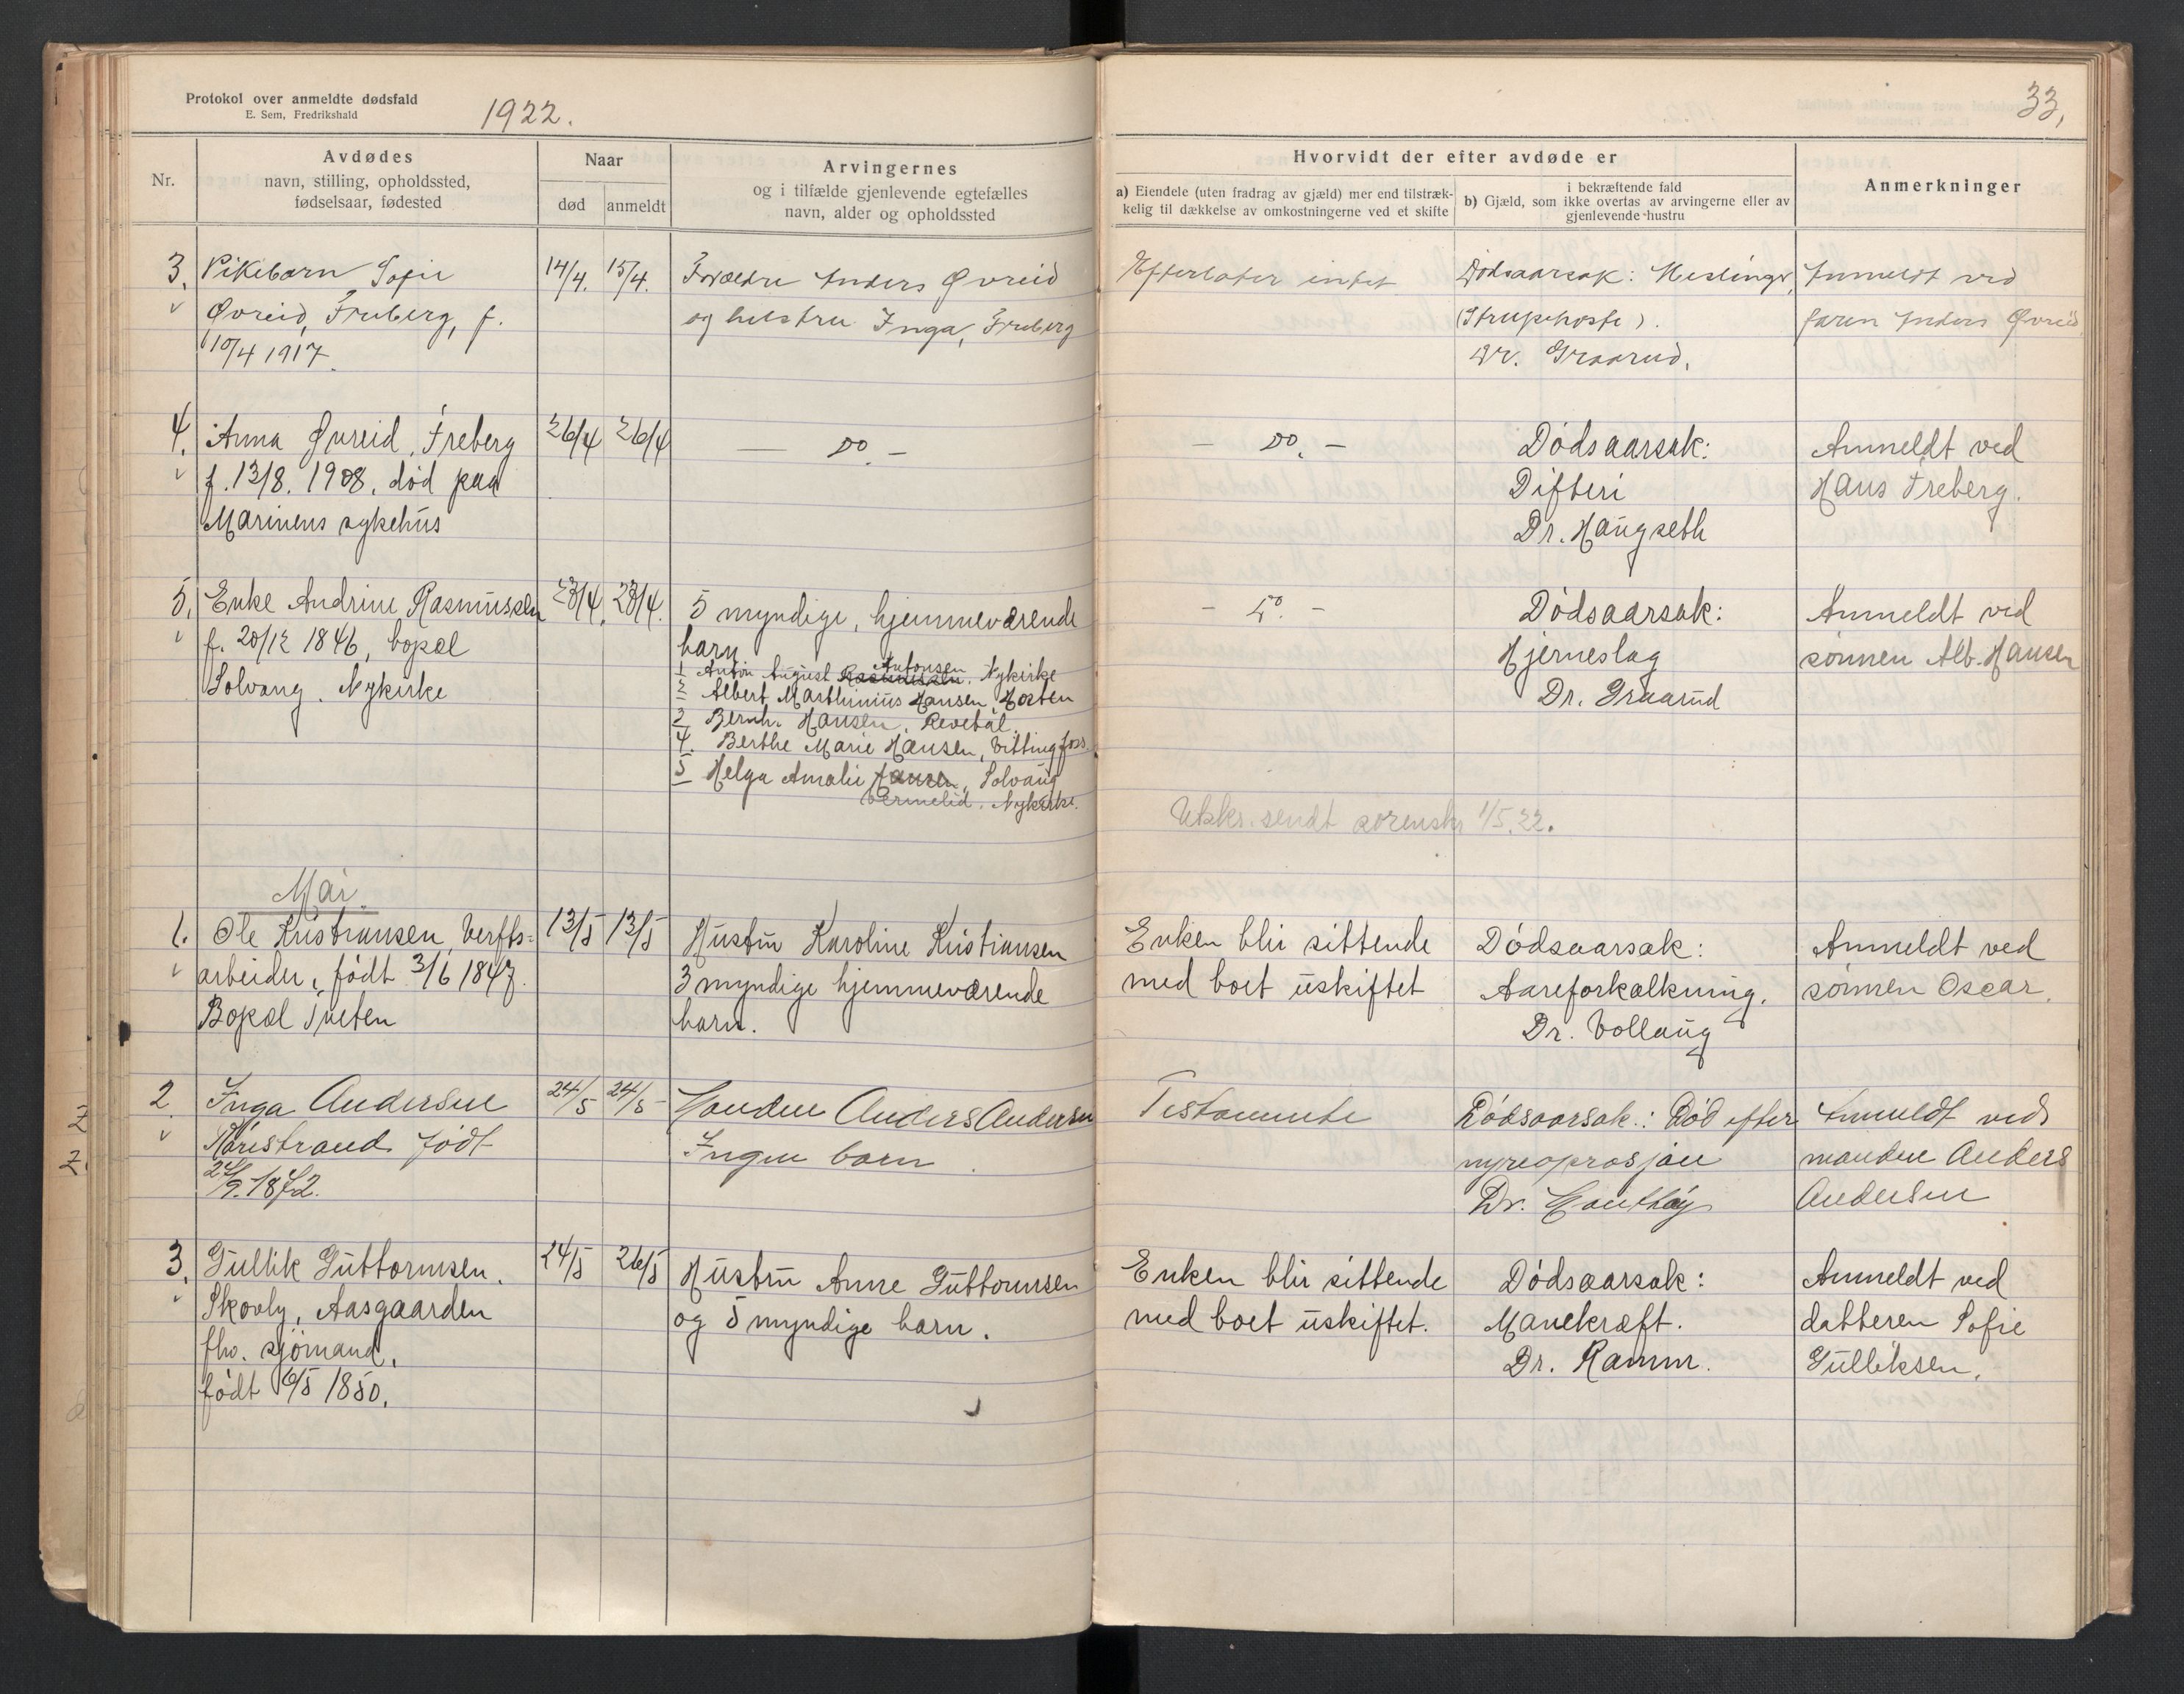 Protokol over anmeldte dødsfald
E. Sem, Fredrikshald
1922.
33,
Nr.
Avdødes
navn, stilling, opholdssted,
fødselsaar, fødested
Naar
død
anmeldt
Arvingernes
og i tilfælde gjenlevende egtefælles
navn, alder og opholdssted
Hvorvidt der efter avdøde er
a) Eiendele (uten fradrag av gjæld) mer end tilstræk-
kelig til dækkelse av omkostningerne ved et skifte
i bekræftende fald
b) Gjæld, som ikke overtas av arvingerne eller av
gjenlevende hustru
Anmerkninger
3.
Pikebarn Sofie
Øvreid, Freberg, f.
10/4 1917.
14/4.
15/4.
Forældre Anders Øvreid
og hustru Inga, Freberg
Efterlater intet
Dødsaarsak: Meslinger,
(Strupehoste).
Dr. Graarud.
Anmeldt ved
faren Anders Øvreid
4.
Anna Øvreid, Freberg
f. 13/8. 1908, død paa
Marinens sykehus
26/4
26/4
— do. —
— do. —
Dødsaarsak:
Difteri
Dr. Haugseth
Anmeldt ved
Hans Freberg.
5.
Enke Andrine Rasmussen
f. 20/12 1846, bopæl
Solvang, Nykirke
23/4.
23/4.
5 myndige, hjemmeværende
barn
1 Anton August Rasmussen Antonsen, Nykirke
2 Albert Marthinius Hansen, Horten
3 Bernh. Hansen, Revetal.
4. Berthe Marie Hansen, Vittingfoss
5 Helga Amalie Hansen, Solvang
Vermelid, Nykirke.
— do. —
Dødsaarsak:
Hjerneslag
Dr. Graarud
Anmeldt ved
sønnen Alb. Hansen
Utskr. sendt sorenskr 1/5.22.
Mai.
1.
Ole Kristiansen, Verfts-
arbeider, født 3/6 1847.
Bopæl Tveten
13/5
13/5
Hustru Karoline Kristiansen
3 myndige hjemmeværende
barn.
Enken blir sittende
med boet uskiftet
Dødsaarsak:
Aareforkalkning.
Dr. Vollaug
Anmeldt ved
sønnen Oscar.
2.
Inga Andersen
født
1872.
24/5
24/5
Manden Anders Andersen
Ingen barn.
Testamente
Dødsaarsak: Død efter
nyreoprasjon
Dr.
Anmeldt ved
manden Anders
Andersen
3.
Gullik Guttormsen.
Skovly, Aasgaarden
fhv. sjømand,
født 6/5 1850.
24/5
26/5
Hustru Anne Guttormsen
og 5 myndige barn.
Enken blir sittende
med boet uskiftet.
Dødsaarsak:
Mavekræft.
Dr. Ramm.
Anmeldt ved
datteren Sofie
Gulliksen.